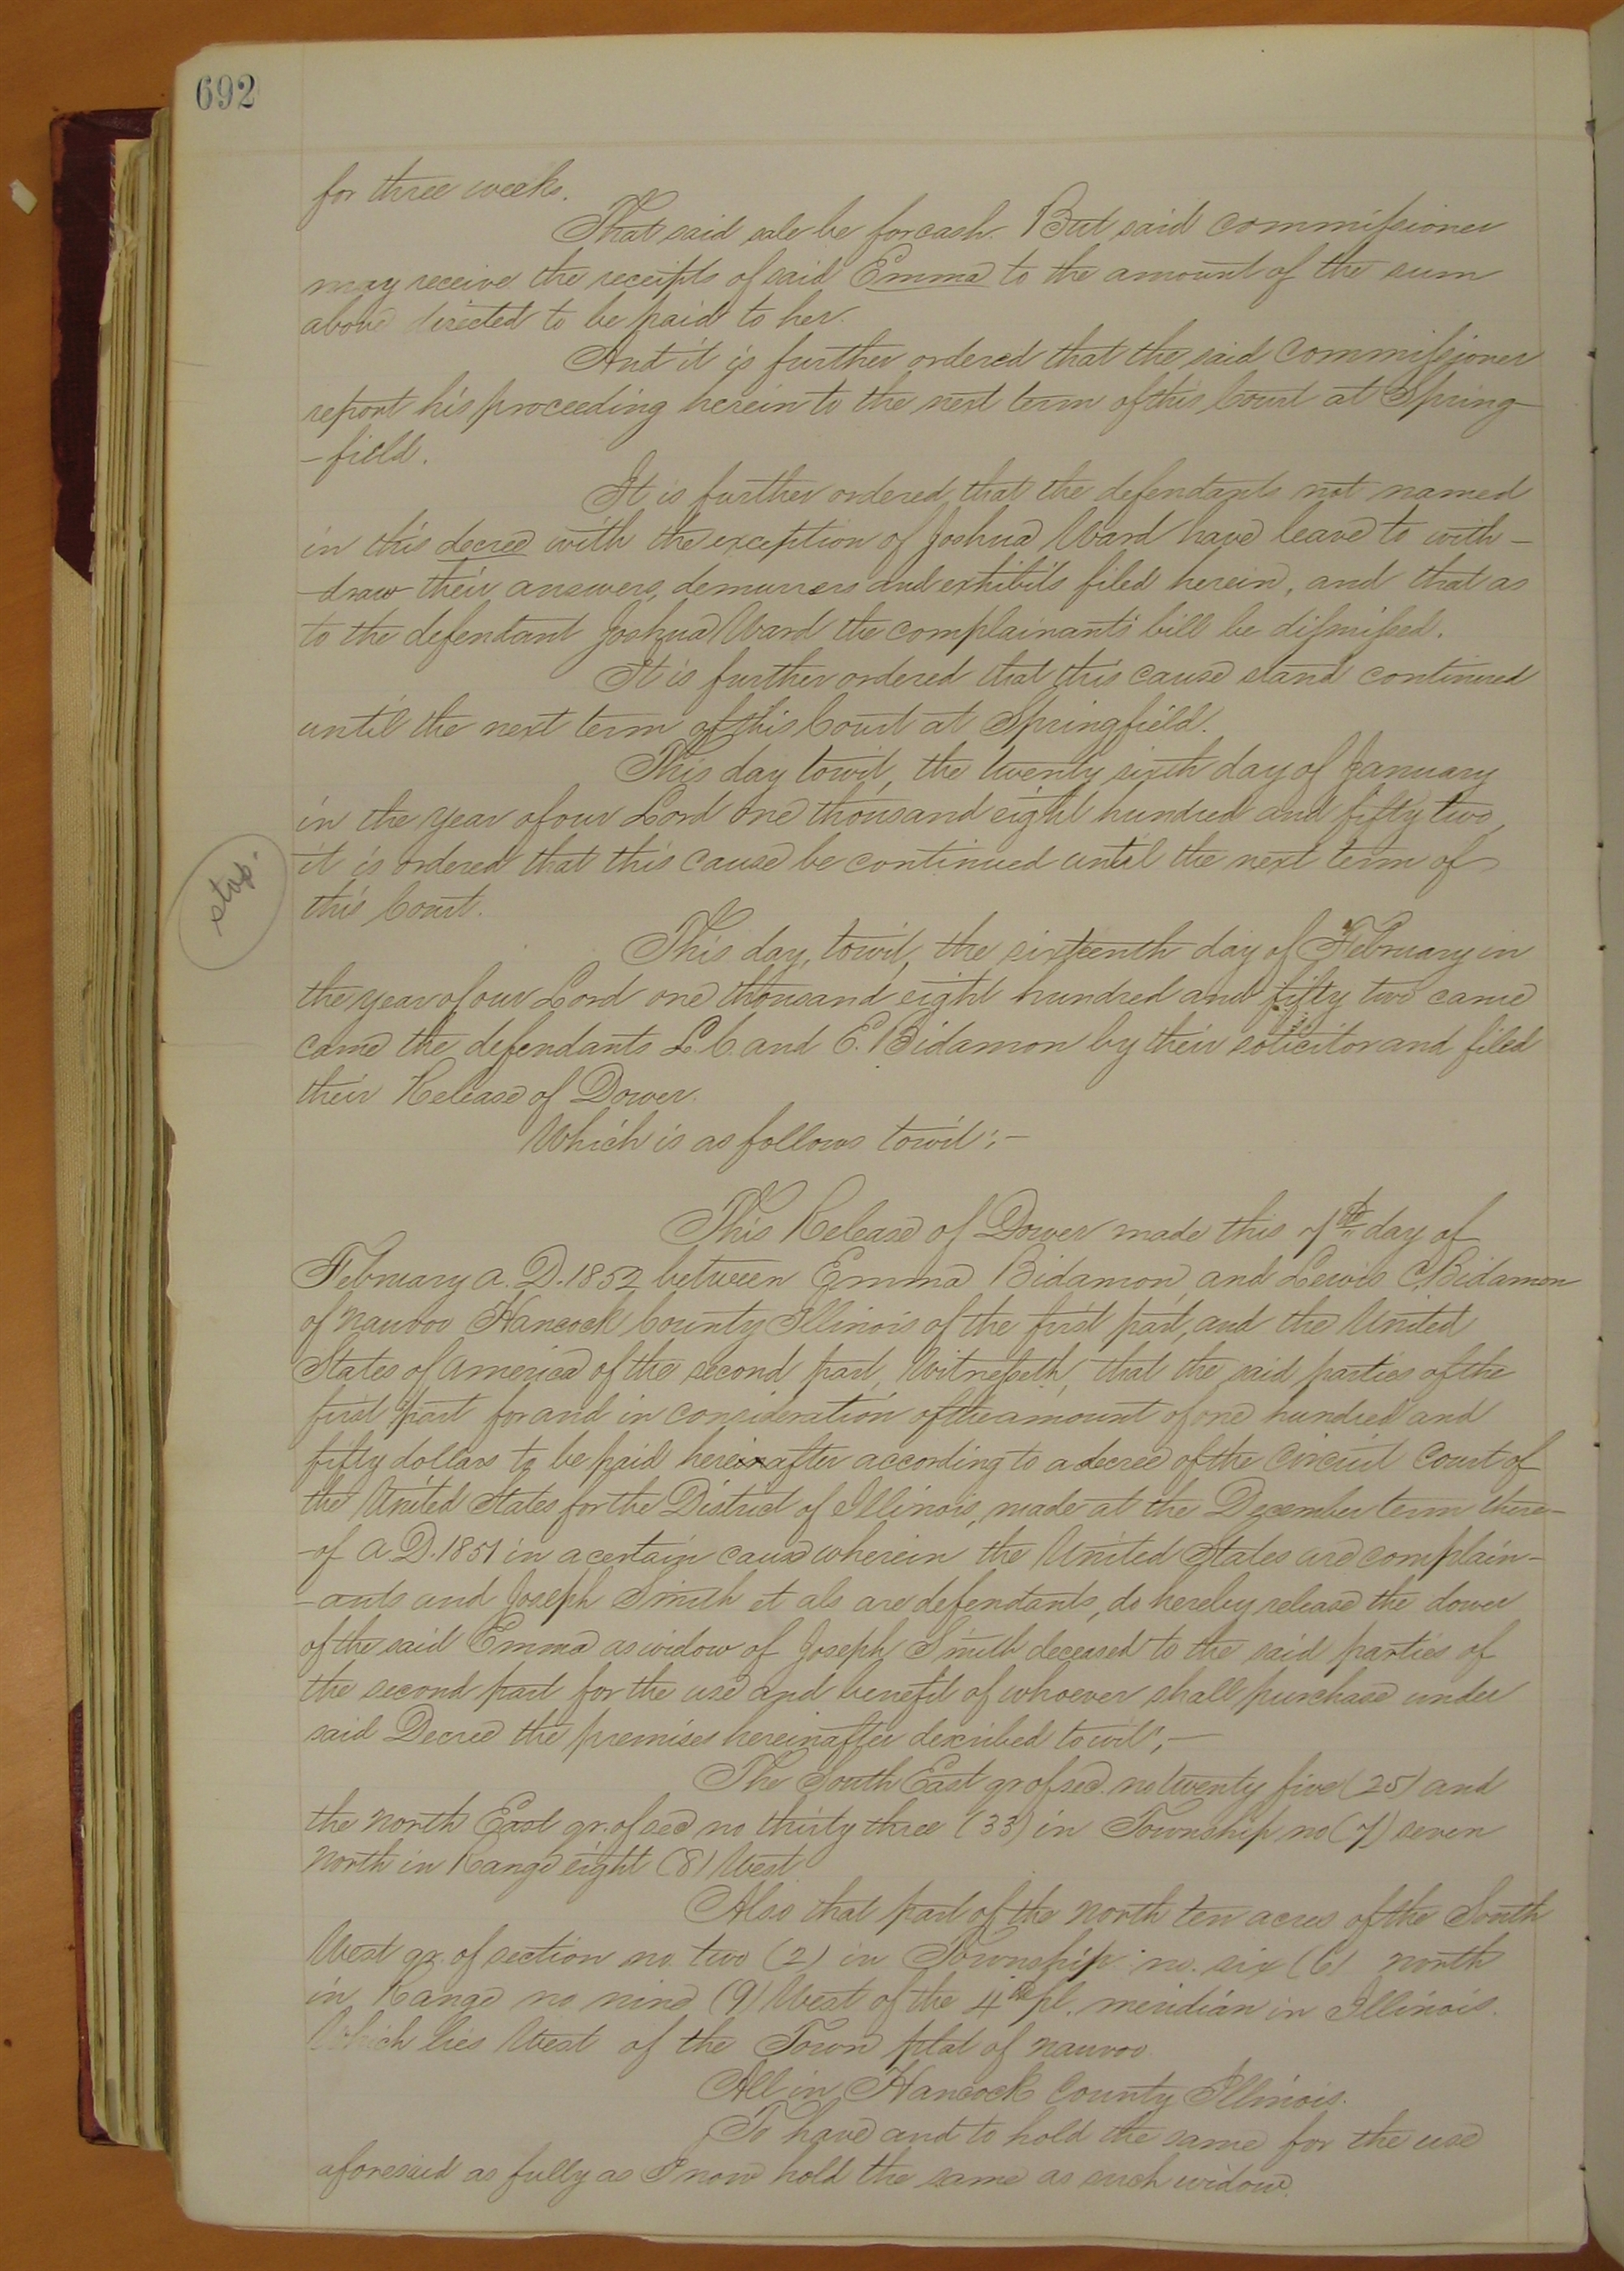 692
for three weeks.
That said sale be for cash. But said commissioner
may receive the receipts of said Emma to the amount of the sum
above directed to be paid to her.
And it is further ordered that the said Commissioner
report his proceeding herein to the next term of this Court at Spring-
-field.
It is further ordered, that the defendants not named
in this decree with the exception of Joshua Ward have leave to with-
-draw their answers, demurrers and exhibits filed herein, and that as
to the defendant Joshua Ward the complainants bill be dismissed.
It is further ordered that this cause stand continued
until the next term of this Court at Springfield.
This day towit, the twenty sixth day of January
in the year of our Lord one thousand eight hundred and fifty two,
it is ordered that this cause be continued until the next term of
this Court.
stop.
This day, towit, the sixteenth day of February in
the year of our Lord one thousand eight hundred and fifty two came
came the defendants L. C. and E. Bidamon by their solicitor and filed
their Release of Dower.
Which is as follows towit:-
This Release of Dower made this 7th day of
February A.D. 1852 between Emma Bidamon, and Lewis C. Bidamon
of Nauvoo Hancock County Illinois of the first part, and the United
States of America of the second part, Witnesseth, that the said parties of the
first part for and in consideration of the amount of one hundred and
fifty dollars to be paid hereinafter according to a decree of the Circuit Court of
the United States for the District of Illinois, made at the December term there-
-of A.D. 1851 in a certain cause wherein the United States are complain-
-ants and Joseph Smith et als are defendants, do hereby release the dower
of the said Emma as widow of Joseph Smith deceased to the said parties of
the second part for the use and benefit of whoever shall purchase under
said Decree the premises hereinafter described towit;-
The South East qr of sec. no twenty five (25) and
the North East qr. of sec no thirty three (33) in Township no (7) seven
North in Range eight (8) West
Also that part of the North ten acres of the South
West qr. of section no. two (2) in Township no. six (6) North
in Range no nine (9) West of the 4th pl. meridian in Illinois.
Which lies West of the Town plat of Nauvoo
All in Hancock County Illinois.
To have and to hold the same for the use
aforesaid as fully as I now hold the same as such widow.